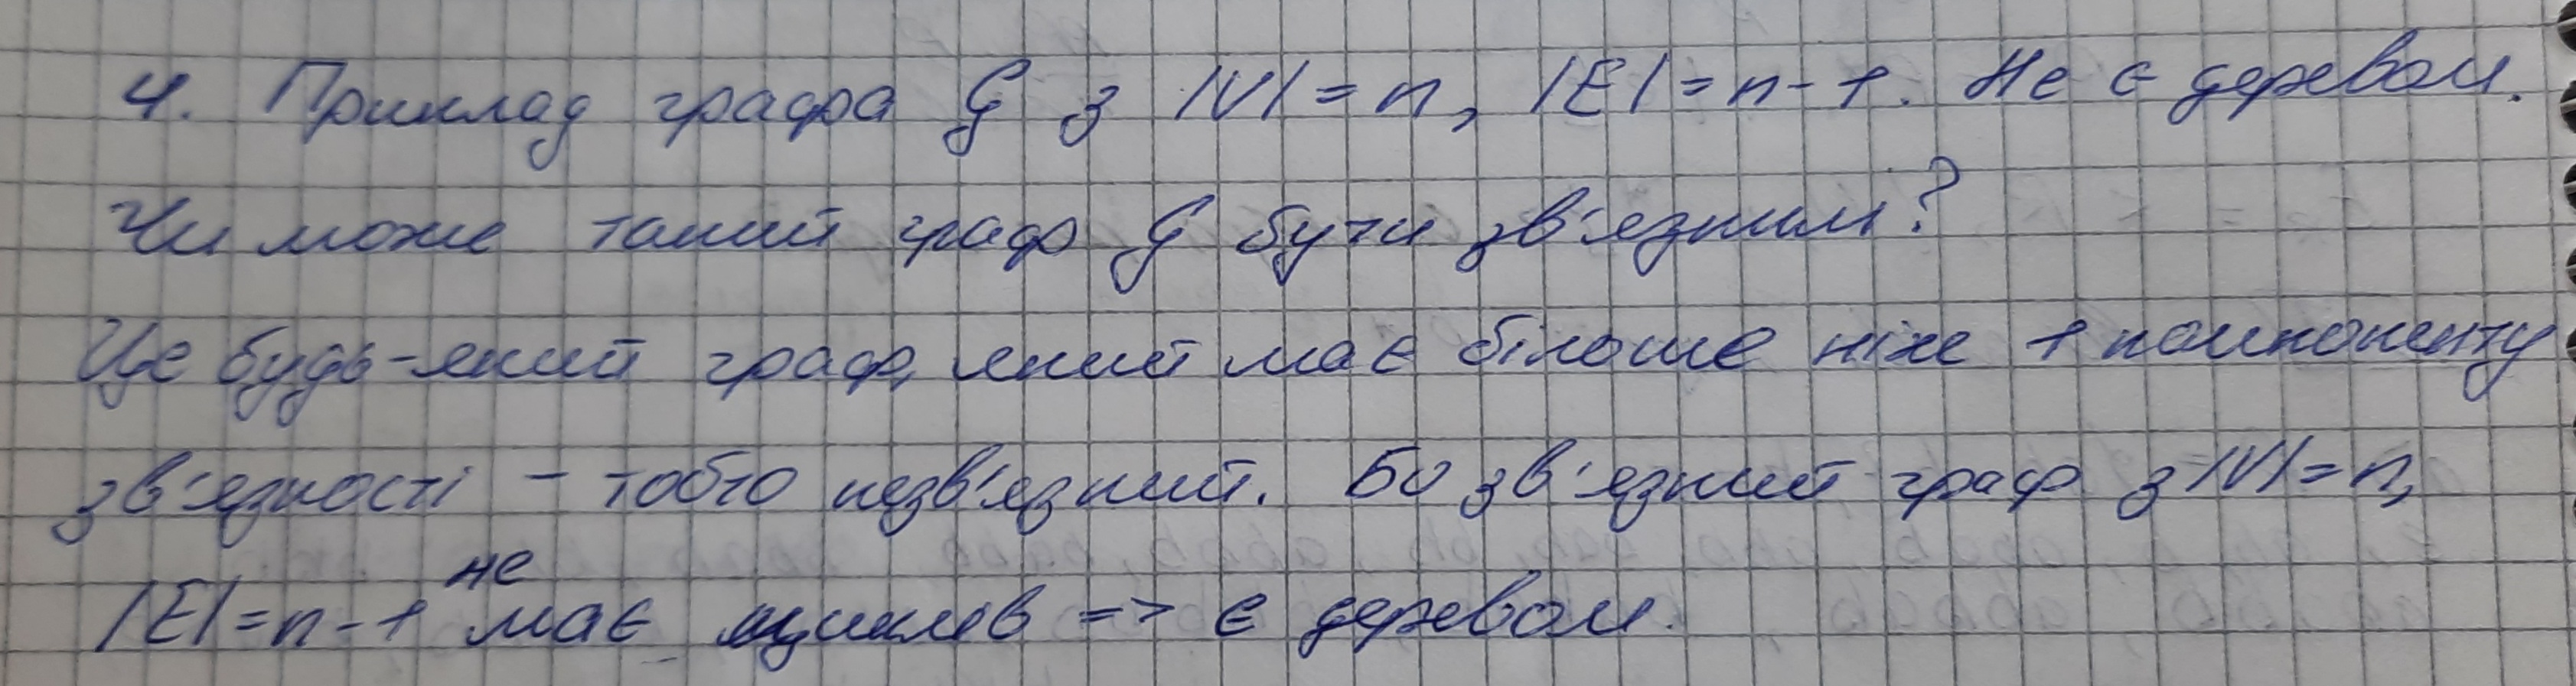 4. Приклад графа G з |V| = n, |E| = n - 1. Не є деревом.
Чи може такий граф G бути зв'язним?
Це будь-який граф, який має більше ніж 1 компоненту
зв'язності - тобто незв'язний. Бо зв'язний граф з |V| = n,
|E| = n - 1 не має циклів => є деревом.